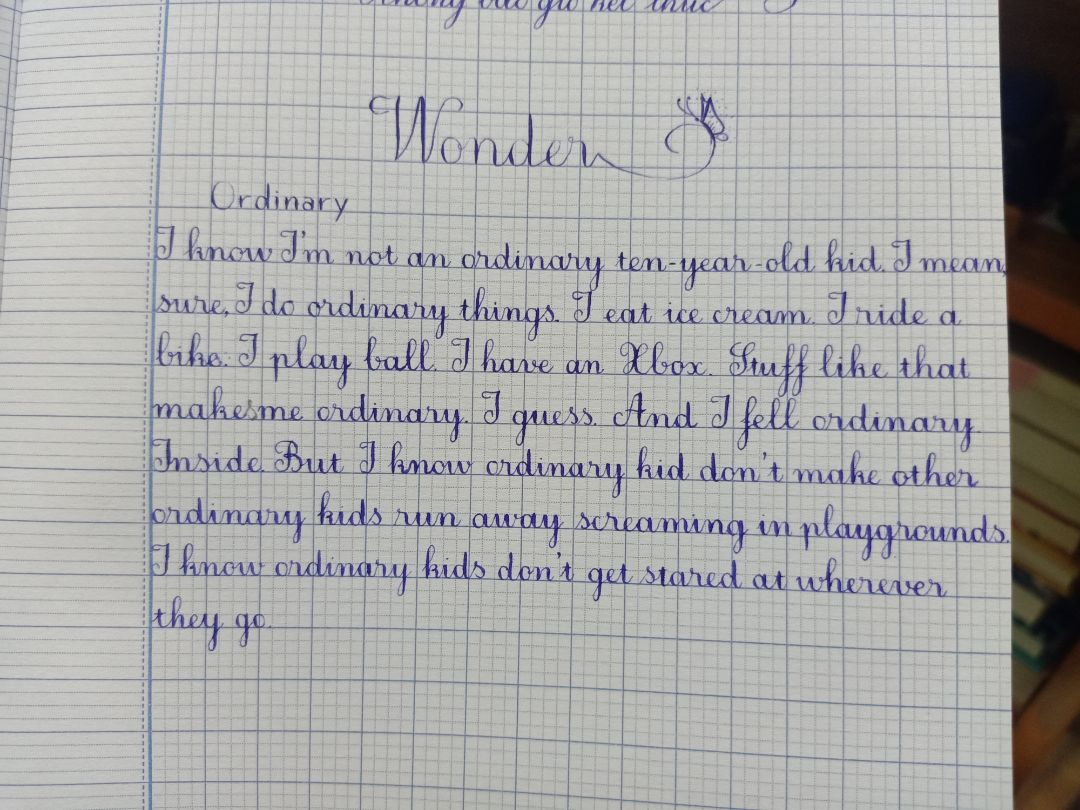 không bao giờ kết thúc
Wonder
Ordinary
I know I'm not an ordinary ten-year-old kid. I mean,
sure, I do ordinary things. I eat ice cream. I ride a
bike. I play ball. I have an Xbox. Stuff like that
makesme ordinary. I guess. And I fell ordinary.
Inside. But I know ordinary kid don't make other
ordinary kids run away screaming in playgrounds.
I know ordinary kids don't get stared at wherever
they go.